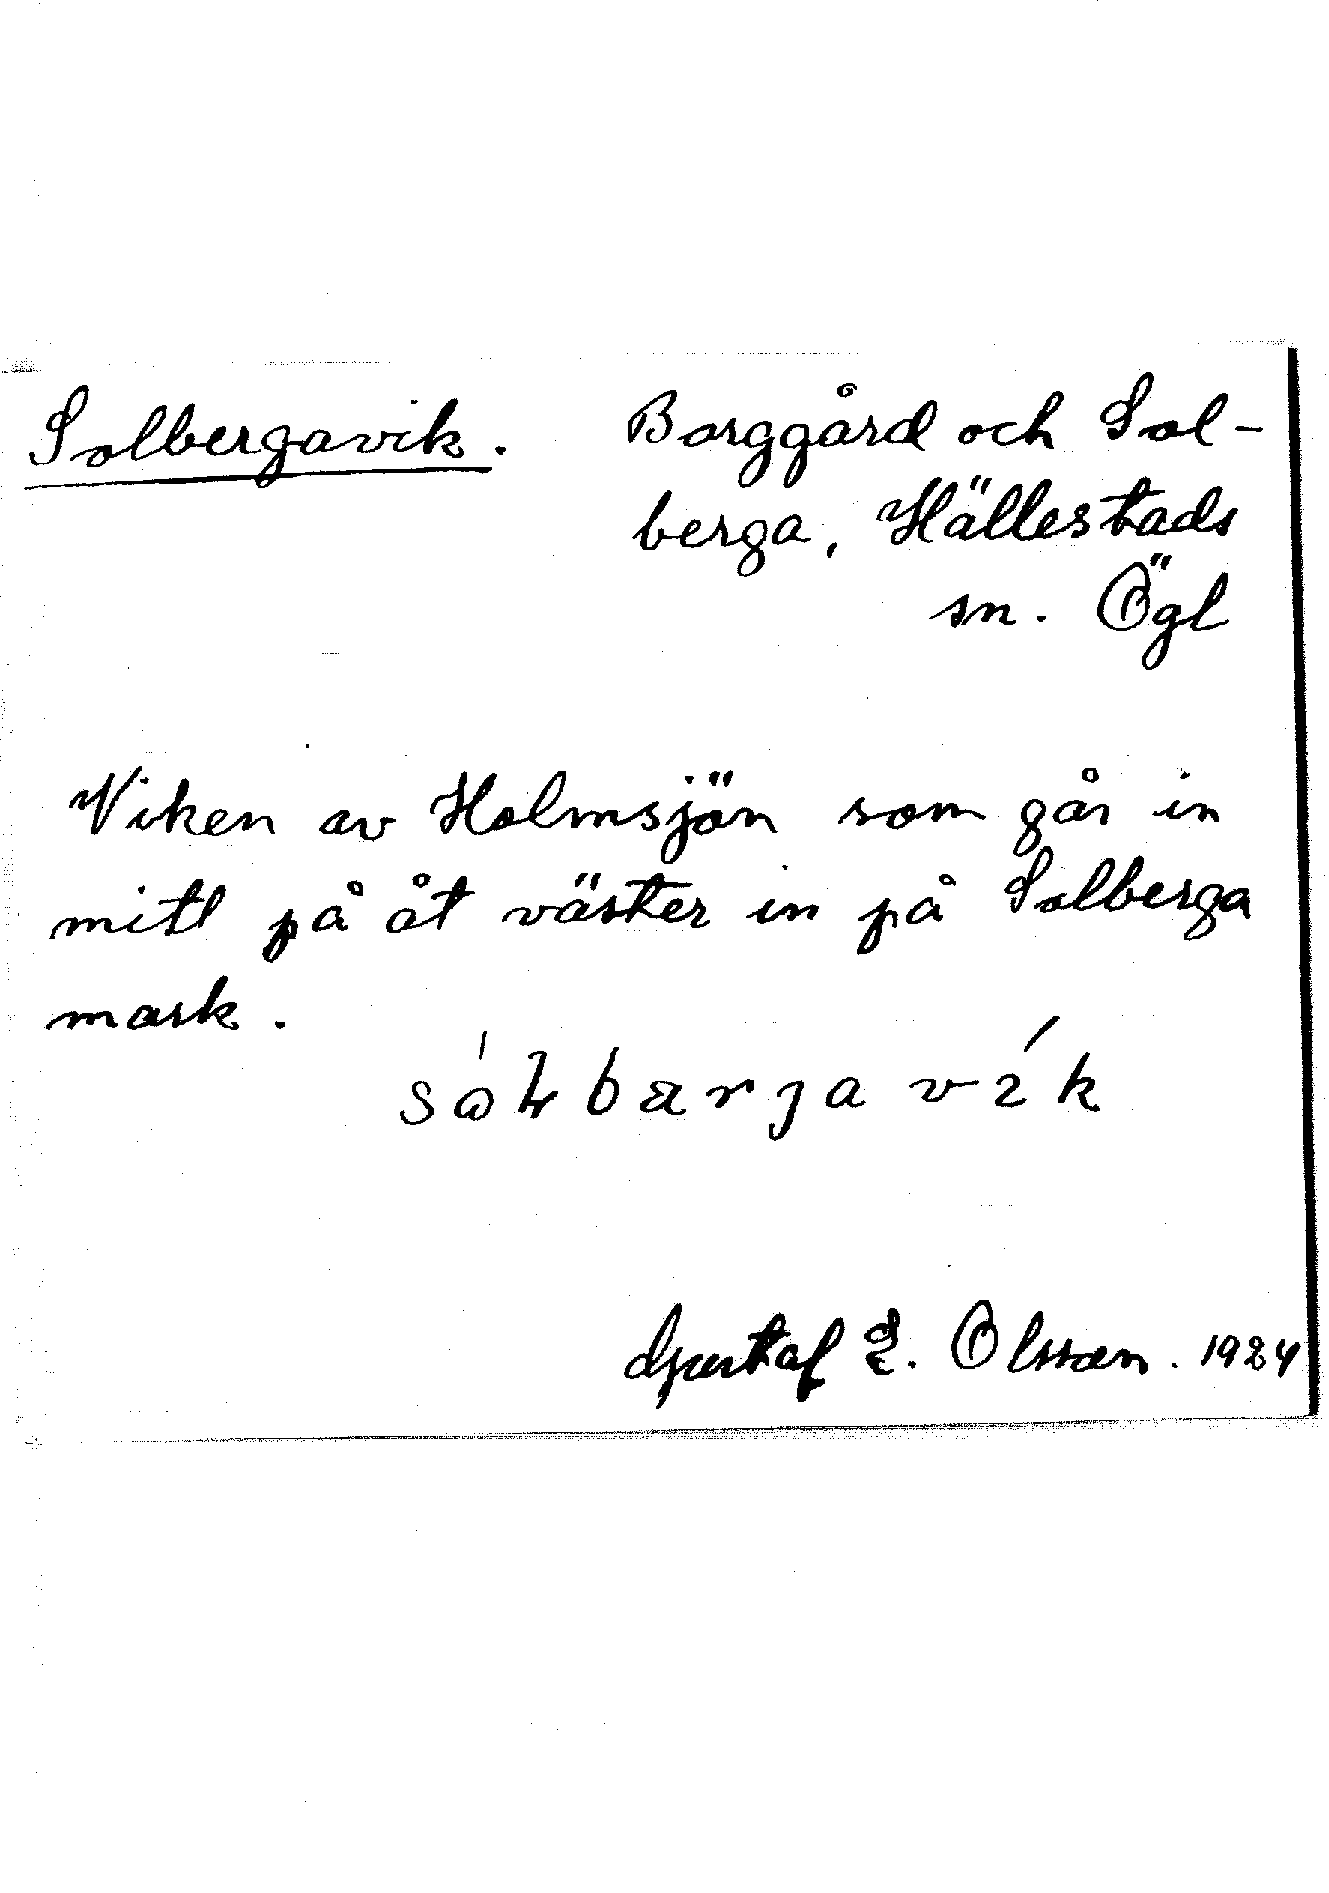 Solbergavik. Borggård och Sol-
berga, Hällestads
sn. Ögl
Viken av Holmsjön som går in
mitt på åt väster in på Solberga
mark.
Gustaf E. Olsson. 1924